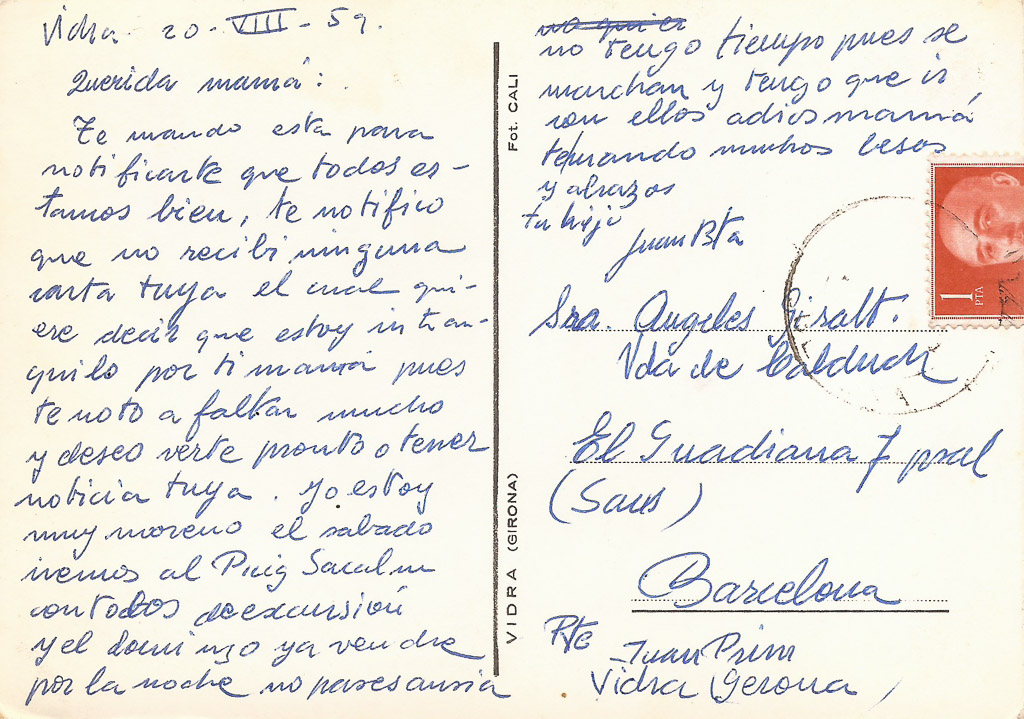 Vidra 20-VIII-59.
Querida mamá:
Te mando esta para
notificarte que todos es-
tamos bien, te notifico
que no recibi ninguna
carta tuya el cual qui-
ere decir que estoy intran-
quilo por ti mamá pues
te noto a faltar mucho
y deseo verte pronto o tener
noticia tuya. Yo estoy
muy moreno el sabado
iremos al Puig Sacalm
con todos de excursión
y el domingo ya vendre
por la noche no pases ansia
no quier
no tengo tiempo pues se
marchan y tengo que ir
con ellos adios mamá
te mando muchos besos
y abrazos
tu hijo
Juan Bta
Fot. CALI
VIDRA (GIRONA)
1 PTA
Sra. Angeles Giralt.
Vda de Calduch
El Guadiana 7 pral
(Sans)
Barcelona
Rte
Juan Prim
Vidra (Gerona)